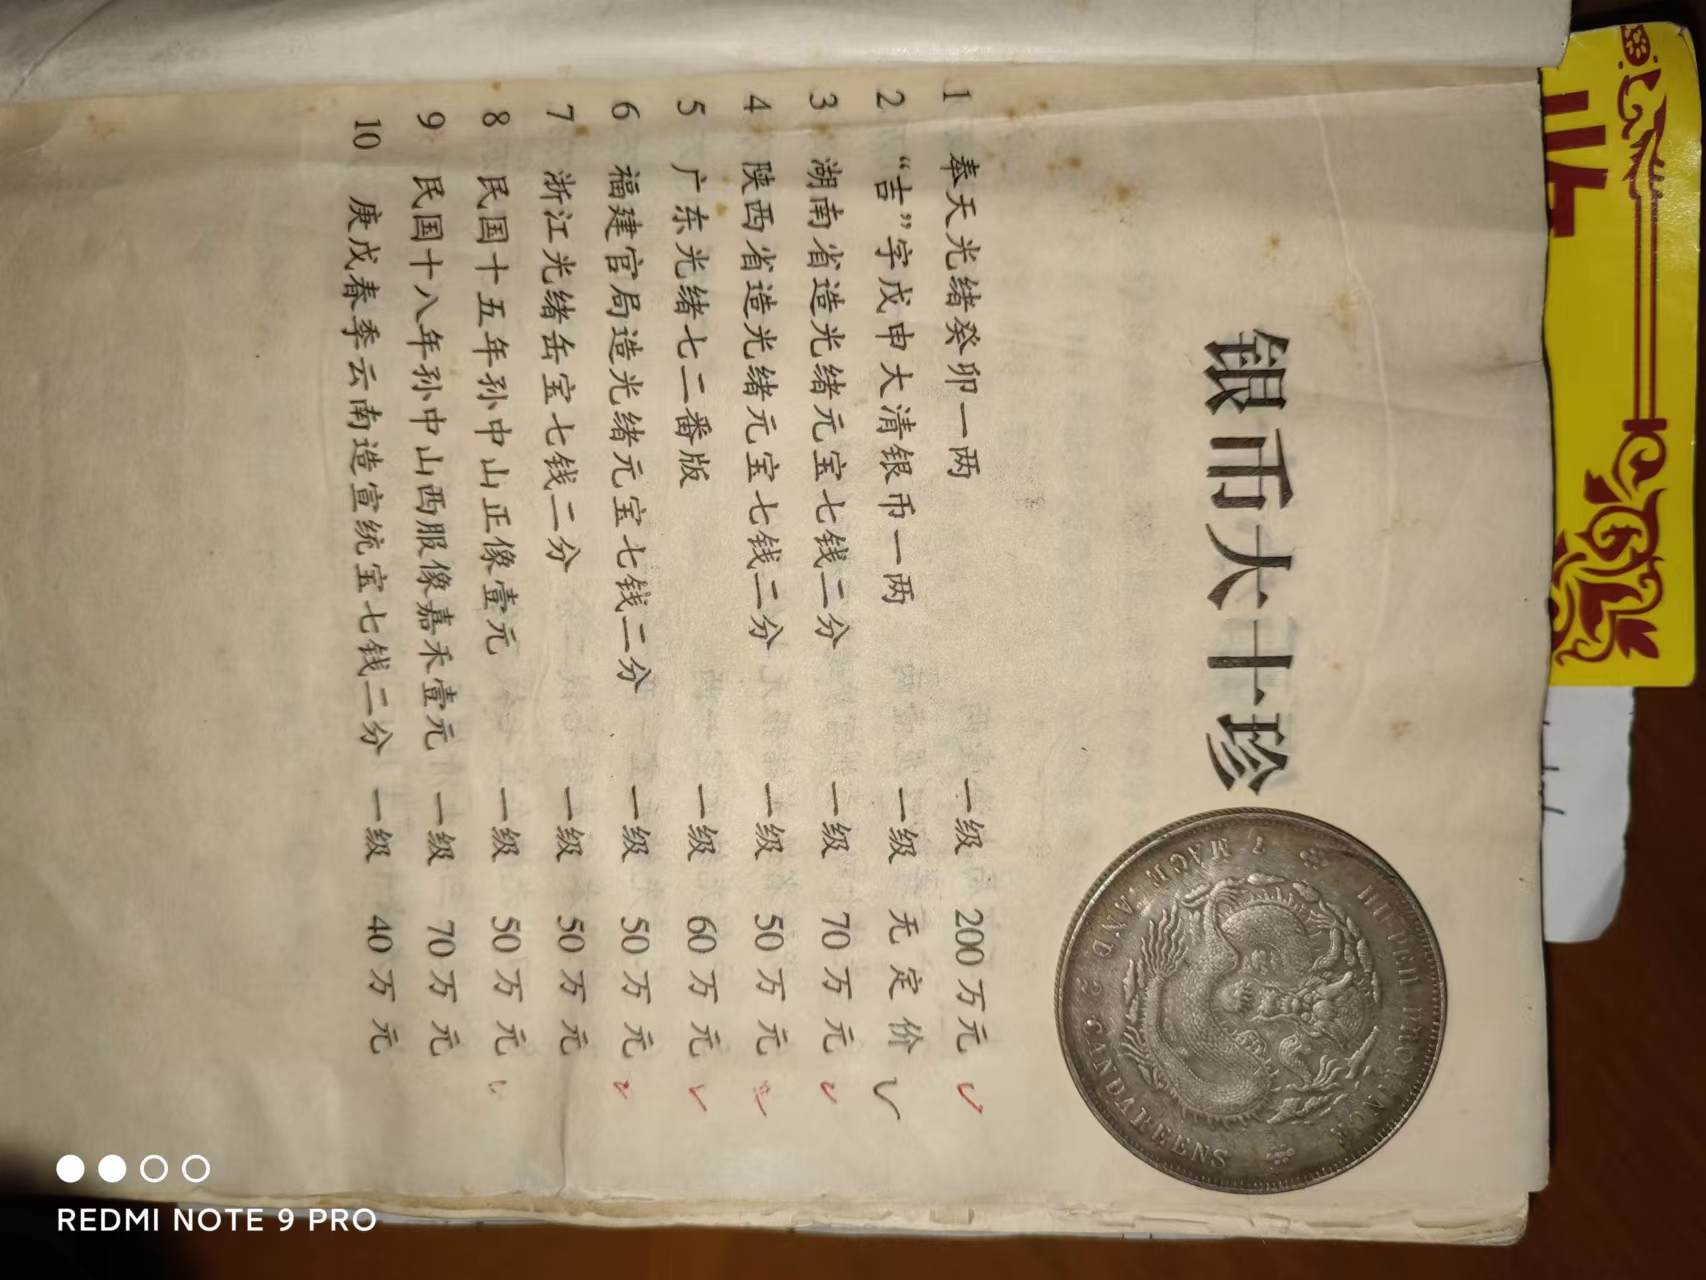 银币大十珍
1 奉天光绪癸卯一两 一级 200万元
2 “吉”字戊申大清银币一两 一级 无定价
3 湖南省造光绪元宝七钱二分 一级 70万元
4 陕西省造光绪元宝七钱二分 一级 50万元
5 广东光绪七二番版 一级 60万元
6 福建官局造光绪元宝七钱二分 一级 50万元
7 浙江光绪缶宝七钱二分 一级 50万元
8 民国十五年孙中山正像壹元 一级 50万元
9 民国十八年孙中山西服像嘉禾壹元 一级 70万元
10 庚戌春季云南造宣统宝七钱二分 一级 40万元
HU-PEH PROVINCE
7 MACE AND 2 CANDAREENS
REDMI NOTE 9 PRO